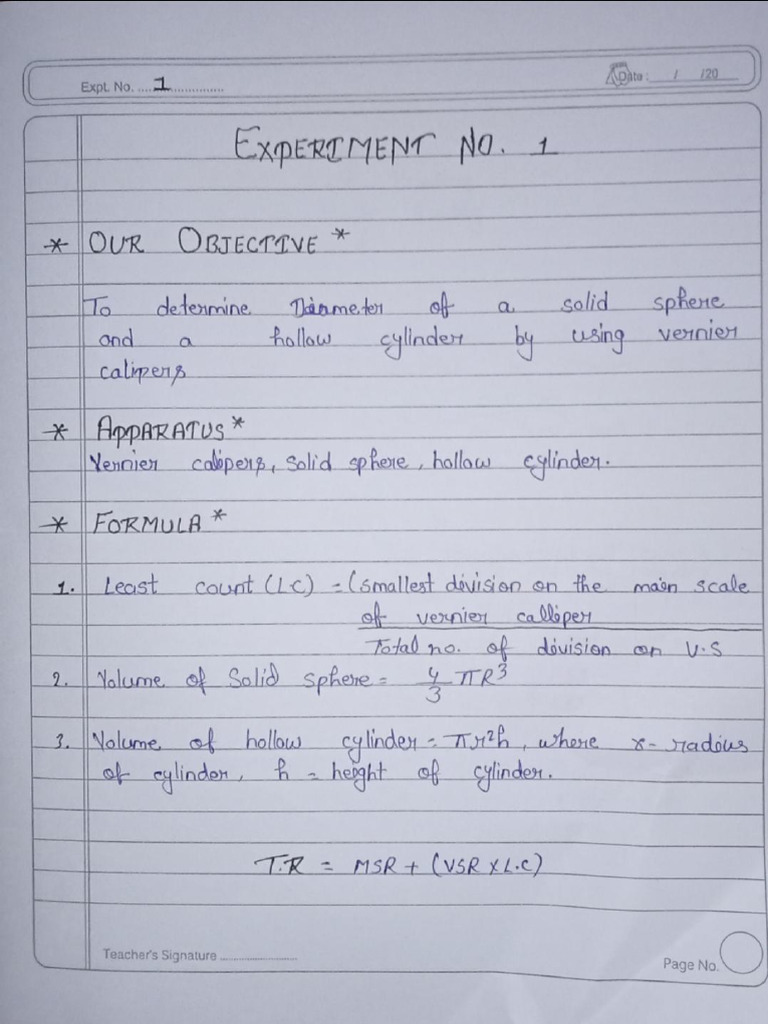 Expt. No. 1
Date: / /20
EXPERIMENT NO. 1
* OUR OBJECTIVE *
To determine Diameter of a solid sphere
and a hollow cylinder by using vernier
calipers
* APPARATUS *
Vernier calipers, solid sphere, hollow cylinder.
* FORMULA *
1. Least count (LC) = (smallest division on the main scale
of vernier calliper
Total no. of division on V.S
2. Volume of Solid sphere = 4/3 πR³
3. Volume of hollow cylinder = πr²h, where r - radius
of cylinder, h = height of cylinder.
T.R = MSR + (VSR X L.C)
Teacher's Signature
Page No.